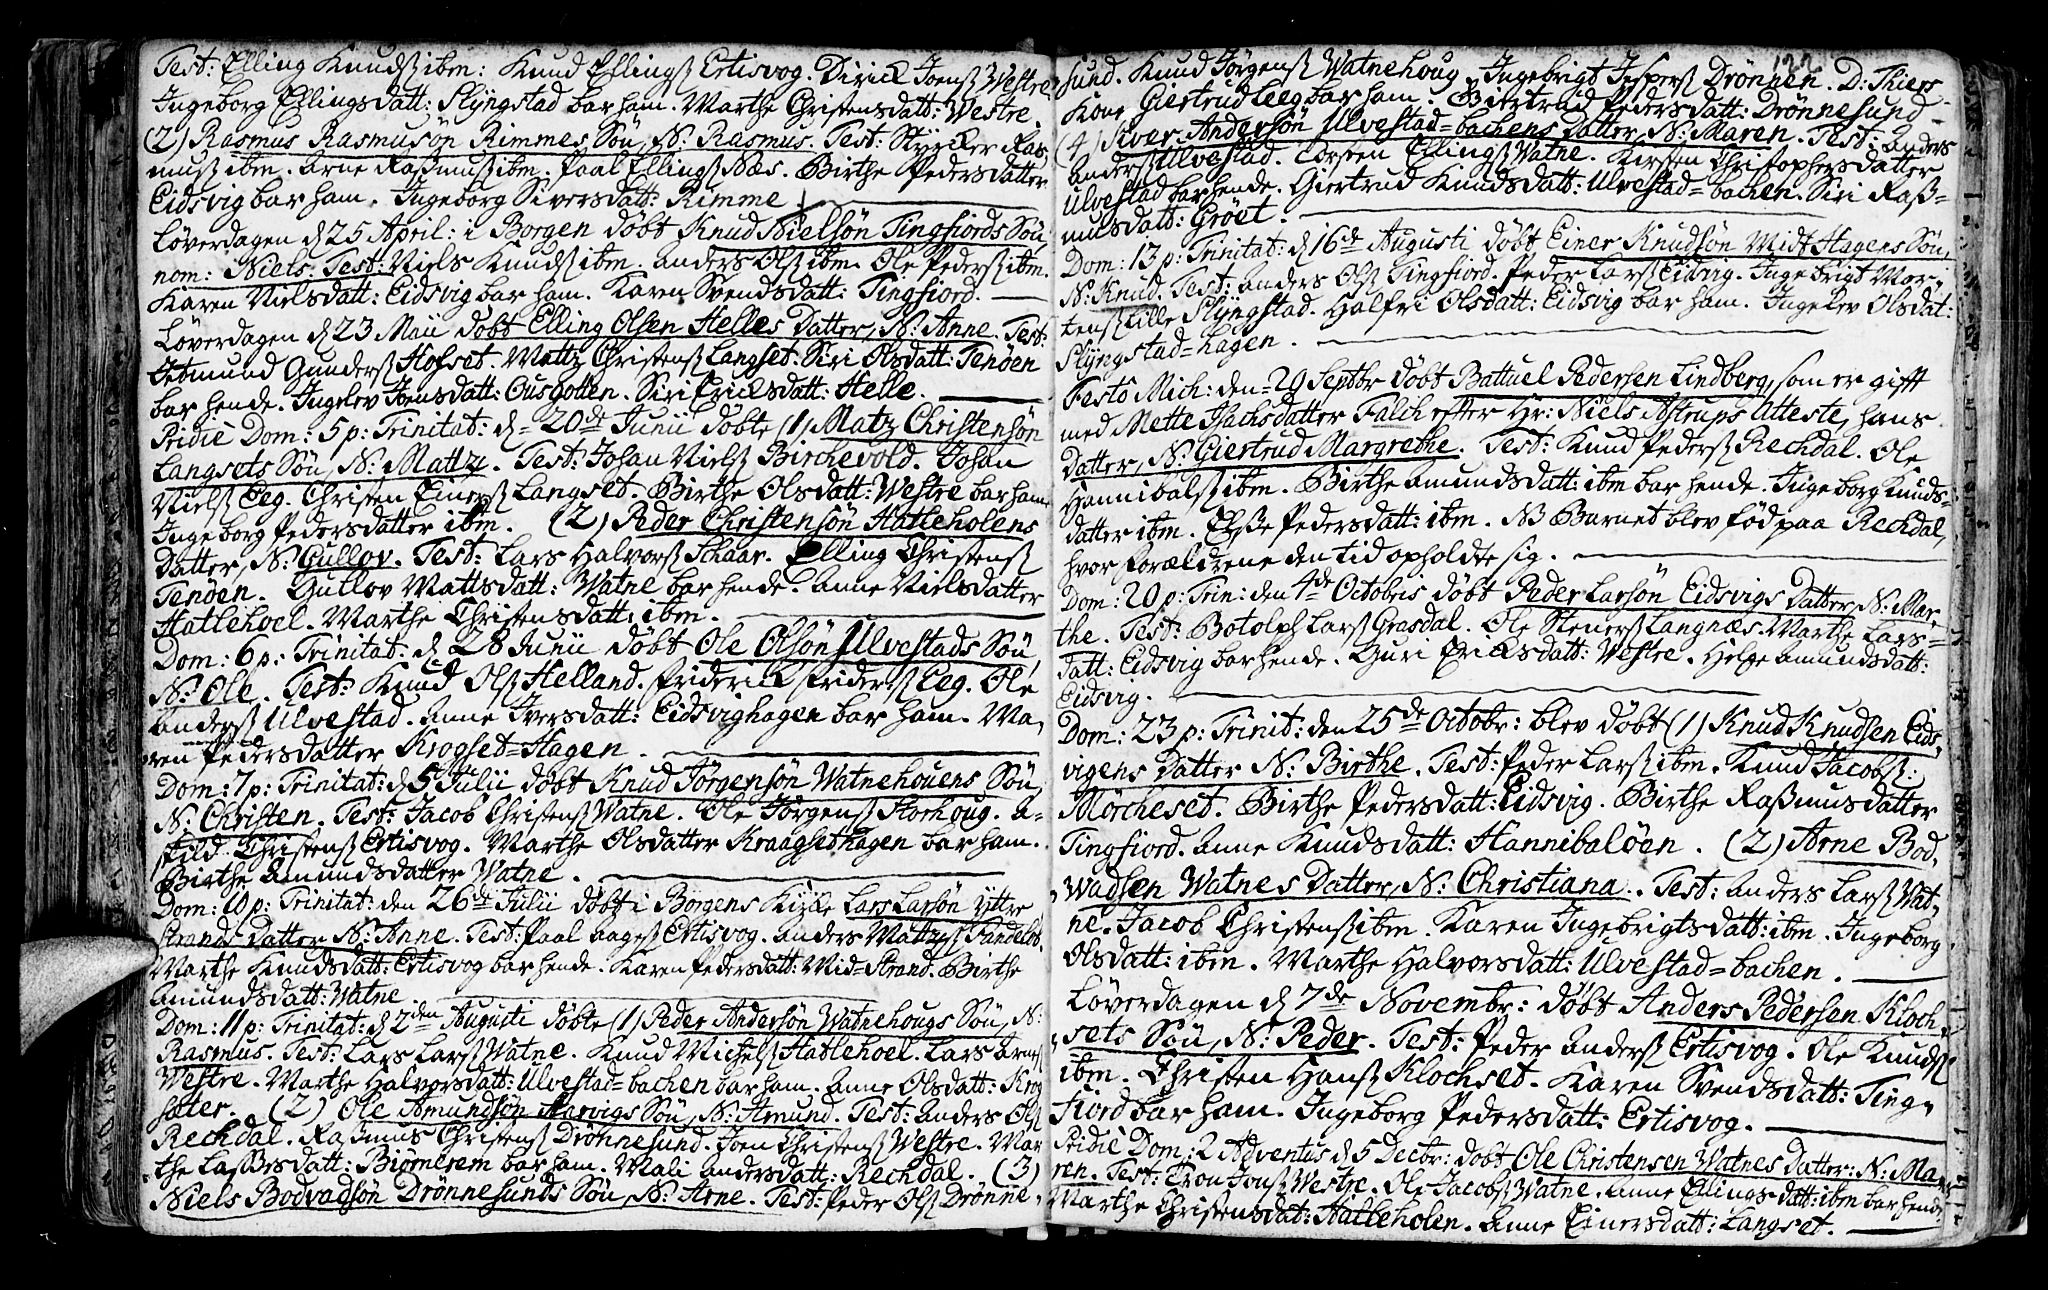 Test: Elling Knudsß ibm: Knud Ellingsß Ertisvog. Dirick Joensß Westre.
Ingeborg Ellingsdatt: Slÿngstad bar ham. Marthe Christensdatt: Westre.
(2) Rasmus Rasmusøn Rimmes Søn, N: Rasmus. Test: Stÿrcker Ras„
musß ibm. Arne Raßmusß ibm. Paal Ellingsß Næs. Birthe Pedersdatter
Eidsvig bar ham. Ingeborg Siversdatt: Rimme
Løverdagen d 25 April: i Borgen døbt Knud Nielsøn Tingfiords Søn
nom: Niels. Test: Niels Knudsß ibm. Anders Olsß ibm. Ole Pedersß ibm.
Karen Nielsdatt: Eidsvig bar ham. Karen Svendsdatt: Tingfiord.
Løverdagen d 23 Maii døbt Elling Olsen Helles Datter, N: Anne. Test:
Jetmund Gundersß Hofset. Mattz Christensß Langset. Siri Olsdatt: Tenøen
bar hende. Ingelev Joensdatt: Ousgotten. Siri Ericksdatt: Helle.
Pridiè Dom: 5 p: Trinitat: d 20de Junii døbte (1) Matz Christensøn
Langsets Søn, N: Mattz. Test: Johan Nielsß Birchevold. Johan
Nielsß Eeg. Christen Einersß Langset. Birthe Olsdatt: Westre bar ham.
Ingeborg Pedersdatter ibm. (2) Peder Christensøn Hatleholens
Datter, N: Gullov. Test: Lars Halvorsß Skaar. Elling Christensß
Tenøen. Gullov Mattsdatt: Watne bar hende. Anne Nielsdatter
Hatlehoel. Marthe Christensdatt: ibm.
Dom: 6 p: Trinitat: d 28 Junii døbt Ole Olsøn Ulvestads Søn,
N: Ole. Test: Knud Olsß Helland. Friderick Fridersß Eeg. Ole
Andersß Ulvestad. Anne Iversdatt: Eidsvighagen bar ham. Ma„
ren Pedersdatter Krogset=Hagen.
Dom: 7 p: Trinitat: d 5 Julii døbt Knud Jørgensøn Watnehouens Søn,
N: Christen. Test: Jacob Christensß Watne. Ole Jørgensß Storhoug. A=
skild Christensß Ertisvog. Marthe Olsdatter Kraagsethagen bar ham.
Birthe Amundsdatter Watne.
Dom: 10 p: Trinitat: den 26de Julii døbt i Borgens Kircke Lars Larsøn Yttre
Strands Datter N: Anne. Test: Paal Aagesß Ertisvog. Anders Mattzsß
Marthe Knudsdatt: Ertisvog bar hende. Karen Pedersdatt: Mid=Strand. Birthe
Amundsdatt: Watne.
Dom: 11 p: Trinitat: d 2den Augusti døbte (1) Peder Andersøn Watnehougs Søn, N:
Rasmus. Test: Lars Larsß Watne. Knud Michelsß Hatlehoel. Lars Arnesß
Westre. Marthe Halvorsdatt: Ulvestad=bachen bar ham. Anne Olsdatt: Krog
sæter. (2) Ole Amundsøn Harvigs Søn, N: Amund. Test: Anders Olsß
Rechdal. Raßmus Christensß Drønnesund. Joen Christensß Westre. Mar
the Laßesdatt: Biørnerem bar ham. Mali Andersdatt: Rechdal. (3)
Niels Bodvadsøn Drønnesunds Søn, N: Arne. Test: Peder Olsß Drønne„
122
sund. Knud Jørgensß Watnehoug. Ingebrigt Jespersß Drønnen. D: Thiers
Kone Giertrud Leeg bar ham. Giertrud Pedersdatt: Drønnesund
(4) Siver Andersøn Ulvestad=bachens Datter, N: Maren. Test: Anders
Andersß Ulvestad. Torsten Ellingsß Watne. Kirsten Christophersdatter
Ulvestad bar hende. Giertrud Knudsdatt: Ulvestad=bachen. Siri Raß=
musdatt: Grøet.
Dom: 13 p: Trinitat: d 16de Augusti døbt Einer Knudsøn Midt Hagens Søn,
N: Knud. Test: Anders Olsß Tingfiord. Peder Larsß Eidvig. Ingebrigt Mor„
tensß Lille Slÿngstad. Halfri Olsdatt: Eidsvig bar ham. Ingelev Olsdat:
Slÿngstad=hagen.
Festo Mich: den 29 Septbr døbt Battuel Pedersen Lindberg, som er gifft
med Mette Isachsdatter Falch efter Hr: Niels Astrups Atteste, hans
Datter, N: Giertrud Margrethe. Test: Knud Pedersß Rechdal. Ole
Hannibalsß ibm. Birthe Amundsdatt: ibm bar hende. Ingeborg Knuds=
datter ibm. Elsße Pedersdatt: ibm. NB Barnet blev fød paa Rechdal,
hvor Forældrene den tid opholdte sig.
Dom: 20 p: Trin: den 4de Octobris døbt Peder Larsøn Eidsvigs Datter, N: Mar„
the. Test: Botolph Larsß Grasdal. Ole Stenersß Langnæs. Marthe Lars=
datt: Eidsvig bar hende. Guri Ericksdatt: Westre. Helge Amundsdatt:
Eidsvig.
Dom: 23 p: Trinit: den 25de Octobr: blev døbt (1) Knud Knudsen Eids„
vigens Datter N: Birthe. Test: Peder Larsß ibm. Knud Jacobsß:
Mørcheset. Birthe Pedersdatt: Eidsvig. Birthe Raßmusdatter
Tingfiord. Anne Knudsdatt: Hannibaløen. (2) Arne Bod„
„wadsen Watnes Datter, N: Christiana. Test: Anders Larsß Wat„
ne. Jacob Christensß ibm. Karen Ingebrigtsdatt: ibm. Ingeborg
Olsdatt: ibm. Marthe Halvorsdatt: Ulvestad=bachen.
Løverdagen d 7de Novembr: døbt Anders Pedersen Kloch„
„sets Søn, N: Peder. Test: Peder Andersß Ertisvog. Ole Knudsß
ibm. Christen Hansß Klochset. Karen Svendsdatt: Ting„
fiord bar ham. Ingeborg Pedersdatt: Ertisvog.
Pridiè Dom: 2 Adventus d 5 Decbr: døbt Ole Christensen Watnes Datter: N: Ma„
ren. Test: Tron Jonsß Westre. Ole Jacobsß Watne. Anne Ellingsdatt: ibm bar hende.
Marthe Christensdat: Hatleholen. Anne Einersdatt: Langset.